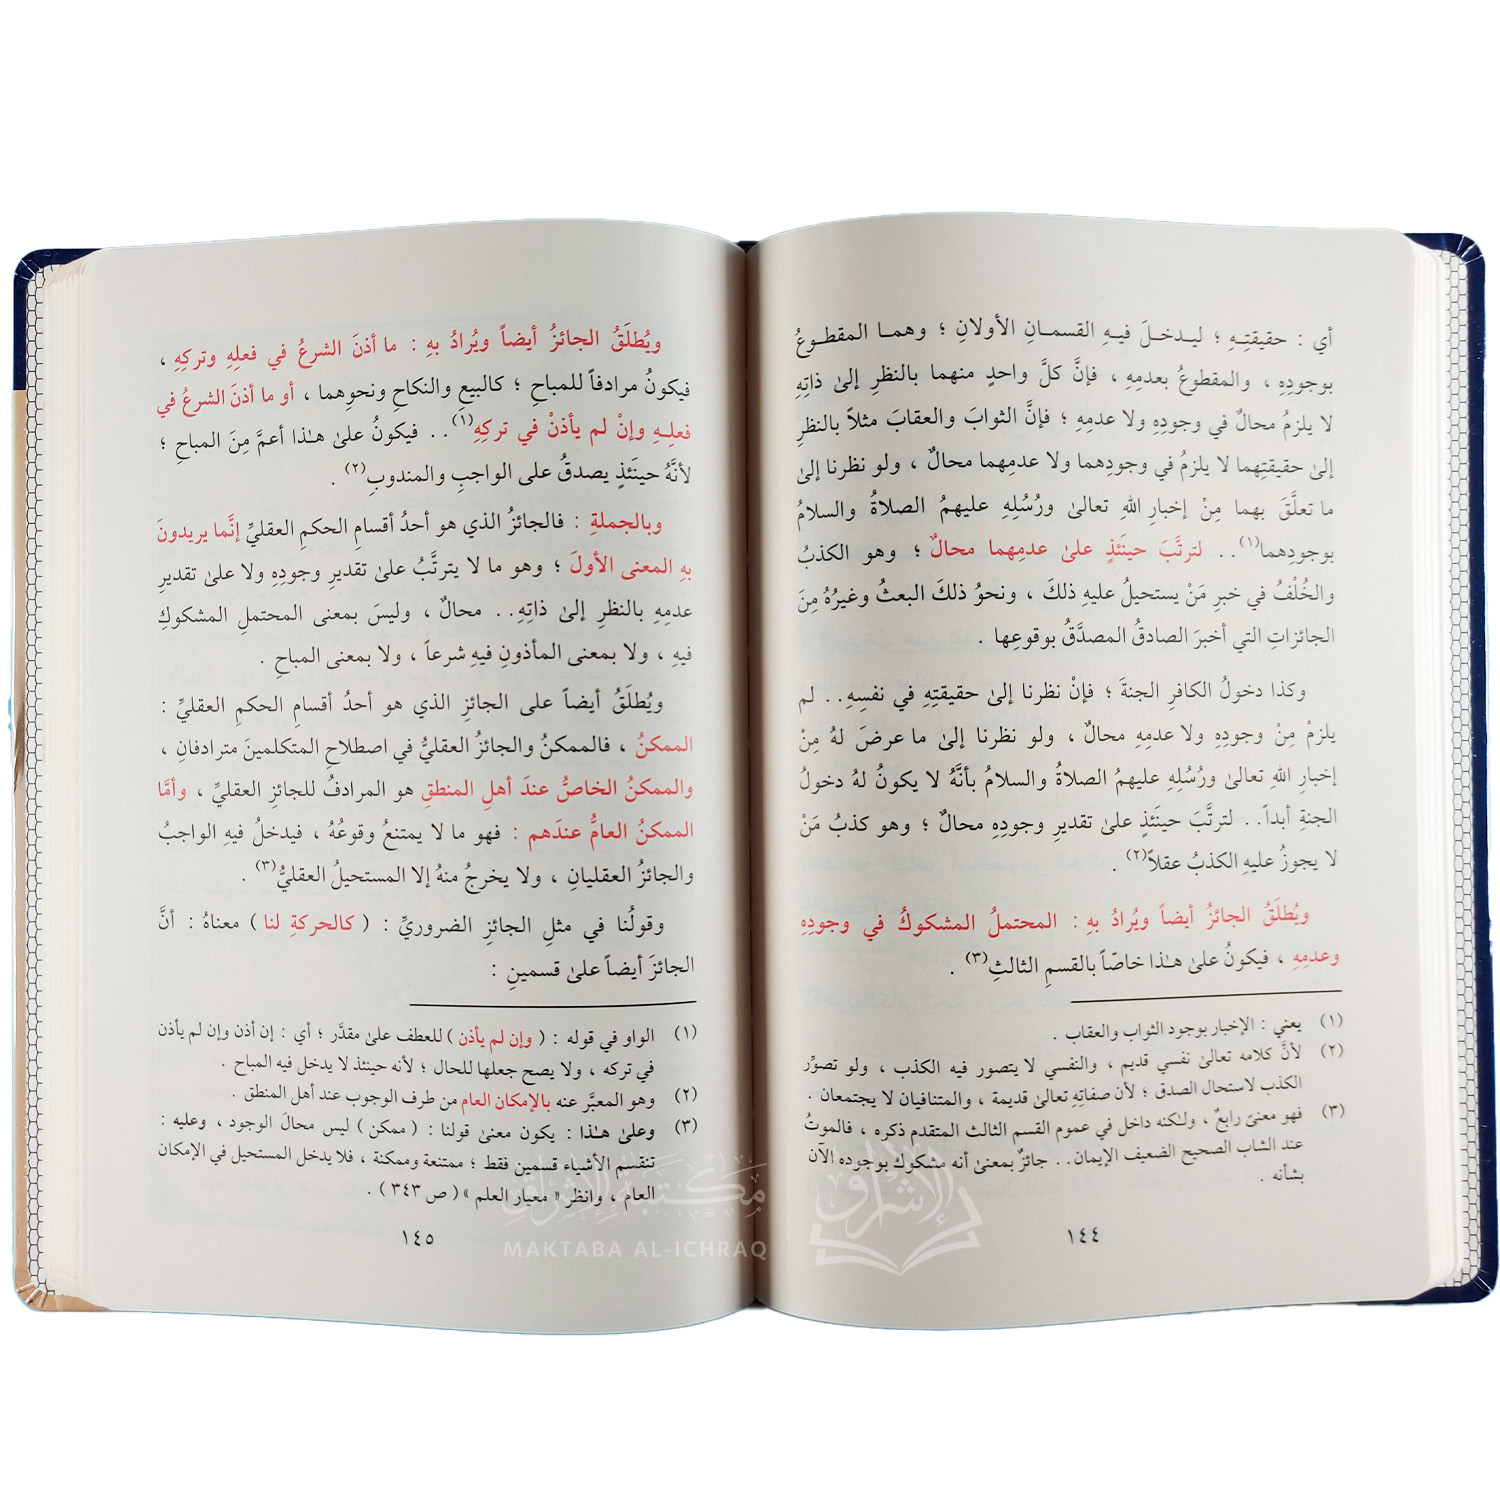 أي : حقيقتِهِ ؛ ليدخلَ فيهِ القسمانِ الأولانِ ؛ وهما المقطوعُ
بوجودِهِ ، والمقطوعُ بعدمِهِ ، فإنَّ كلَّ واحدٍ منهما بالنظرِ إلىٰ ذاتِهِ
لا يلزمُ محالٌ في وجودِهِ ولا عدمِهِ ؛ فإنَّ الثوابَ والعقابَ مثلاً بالنظرِ
إلىٰ حقيقتِهما لا يلزمُ في وجودِهما ولا عدمِهما محالٌ ، ولو نظرنا إلىٰ
ما تعلَّقَ بهما مِنْ إخبارِ اللهِ تعالىٰ ورُسُلِهِ عليهمُ الصلاةُ والسلامُ
بوجودِهما(١).. لترتَّبَ حينَئذٍ علىٰ عدمِهما محالٌ ؛ وهو الكذبُ
والخُلْفُ في خبرِ مَنْ يستحيلُ عليهِ ذلكَ ، ونحوُ ذلكَ البعثُ وغيرُهُ مِنَ
الجائزاتِ التي أخبرَ الصادقُ المصدَّقُ بوقوعِها .
وكذا دخولُ الكافرِ الجنةَ ؛ فإنْ نظرنا إلىٰ حقيقتِهِ في نفسِهِ.. لم
يلزمْ مِنْ وجودِهِ ولا عدمِهِ محالٌ ، ولو نظرنا إلىٰ ما عرضَ لهُ مِنْ
إخبارِ اللهِ تعالىٰ ورُسُلِهِ عليهمُ الصلاةُ والسلامُ بأنَّهُ لا يكونُ لهُ دخولُ
الجنةِ أبداً.. لترتَّبَ حينَئذٍ علىٰ تقديرِ وجودِهِ محالٌ ؛ وهو كذبُ مَنْ
لا يجوزُ عليهِ الكذبُ عقلاً(٢) .
ويُطلَقُ الجائزُ أيضاً ويُرادُ بهِ : المحتملُ المشكوكُ في وجودِهِ
وعدمِهِ ، فيكونُ علىٰ هـٰذا خاصّاً بالقسمِ الثالثِ(٣) .
(١) يعني : الإخبار بوجود الثواب والعقاب .
(٢) لأنَّ كلامه تعالىٰ نفسي قديم ، والنفسي لا يتصور فيه الكذب ، ولو تصوِّر
الكذب لاستحال الصدق ؛ لأن صفاتِهِ تعالىٰ قديمة ، والمتنافيان لا يجتمعان .
(٣) فهو معنىً رابعٌ ، ولـٰكنه داخل في عموم القسم الثالث المتقدم ذكره ، فالموتُ
عند الشاب الصحيح الضعيف الإيمان.. جائزٌ بمعنى أنه مشكوك بوجوده الآن
بشأنه .
١٤٤
ويُطلَقُ الجائزُ أيضاً ويُرادُ بهِ : ما أذنَ الشرعُ في فعلِهِ وتركِهِ ،
فيكونُ مرادفاً للمباحِ ؛ كالبيعِ والنكاحِ ونحوِهما ، أو ما أذنَ الشرعُ في
فعلِهِ وإنْ لم يأذنْ في تركِهِ(١).. فيكونُ علىٰ هـٰذا أعمَّ مِنَ المباحِ ؛
لأنَّهُ حينَئذٍ يصدقُ على الواجبِ والمندوبِ(٢) .
وبالجملةِ : فالجائزُ الذي هو أحدُ أقسامِ الحكمِ العقليِّ إنَّما يريدونَ
بهِ المعنى الأولَ ؛ وهو ما لا يترتَّبُ علىٰ تقديرِ وجودِهِ ولا علىٰ تقديرِ
عدمِهِ بالنظرِ إلىٰ ذاتِهِ.. محالٌ ، وليسَ بمعنى المحتملِ المشكوكِ
فيهِ ، ولا بمعنى المأذونِ فيهِ شرعاً ، ولا بمعنى المباحِ .
ويُطلَقُ أيضاً على الجائزِ الذي هو أحدُ أقسامِ الحكمِ العقليِّ :
الممكنُ ، فالممكنُ والجائزُ العقليُّ في اصطلاحِ المتكلمينَ مترادفانِ ،
والممكنُ الخاصُّ عندَ أهلِ المنطقِ هو المرادفُ للجائزِ العقليِّ ، وأمَّا
الممكنُ العامُّ عندَهم : فهو ما لا يمتنعُ وقوعُهُ ، فيدخلُ فيهِ الواجبُ
والجائزُ العقليانِ ، ولا يخرجُ منهُ إلا المستحيلُ العقليُّ(٣) .
وقولُنا في مثلِ الجائزِ الضروريِّ : ( كالحركةِ لنا ) معناهُ : أنَّ
الجائزَ أيضاً علىٰ قسمينِ :
(١) الواو في قوله : ( وإن لم يأذن ) للعطف علىٰ مقدَّر ؛ أي : إن أذن وإن لم يأذن
في تركه ، ولا يصح جعلها للحال ؛ لأنه حينئذ لا يدخل فيه المباح .
(٢) وهو المعبَّر عنه بالإمكان العام من طرف الوجوب عند أهل المنطق .
(٣) وعلىٰ هـٰذا : يكون معنىٰ قولنا : ( ممكن ) ليس محالَ الوجود ، وعليه :
تنقسم الأشياء قسمين فقط ؛ ممتنعة وممكنة ، فلا يدخل المستحيل في الإمكان
العام ، وانظر « معيار العلم » ( ص ٣٤٣ ) .
١٤٥
مكتبة الإشراق
MAKTABA AL-ICHRAQ
الإشراق